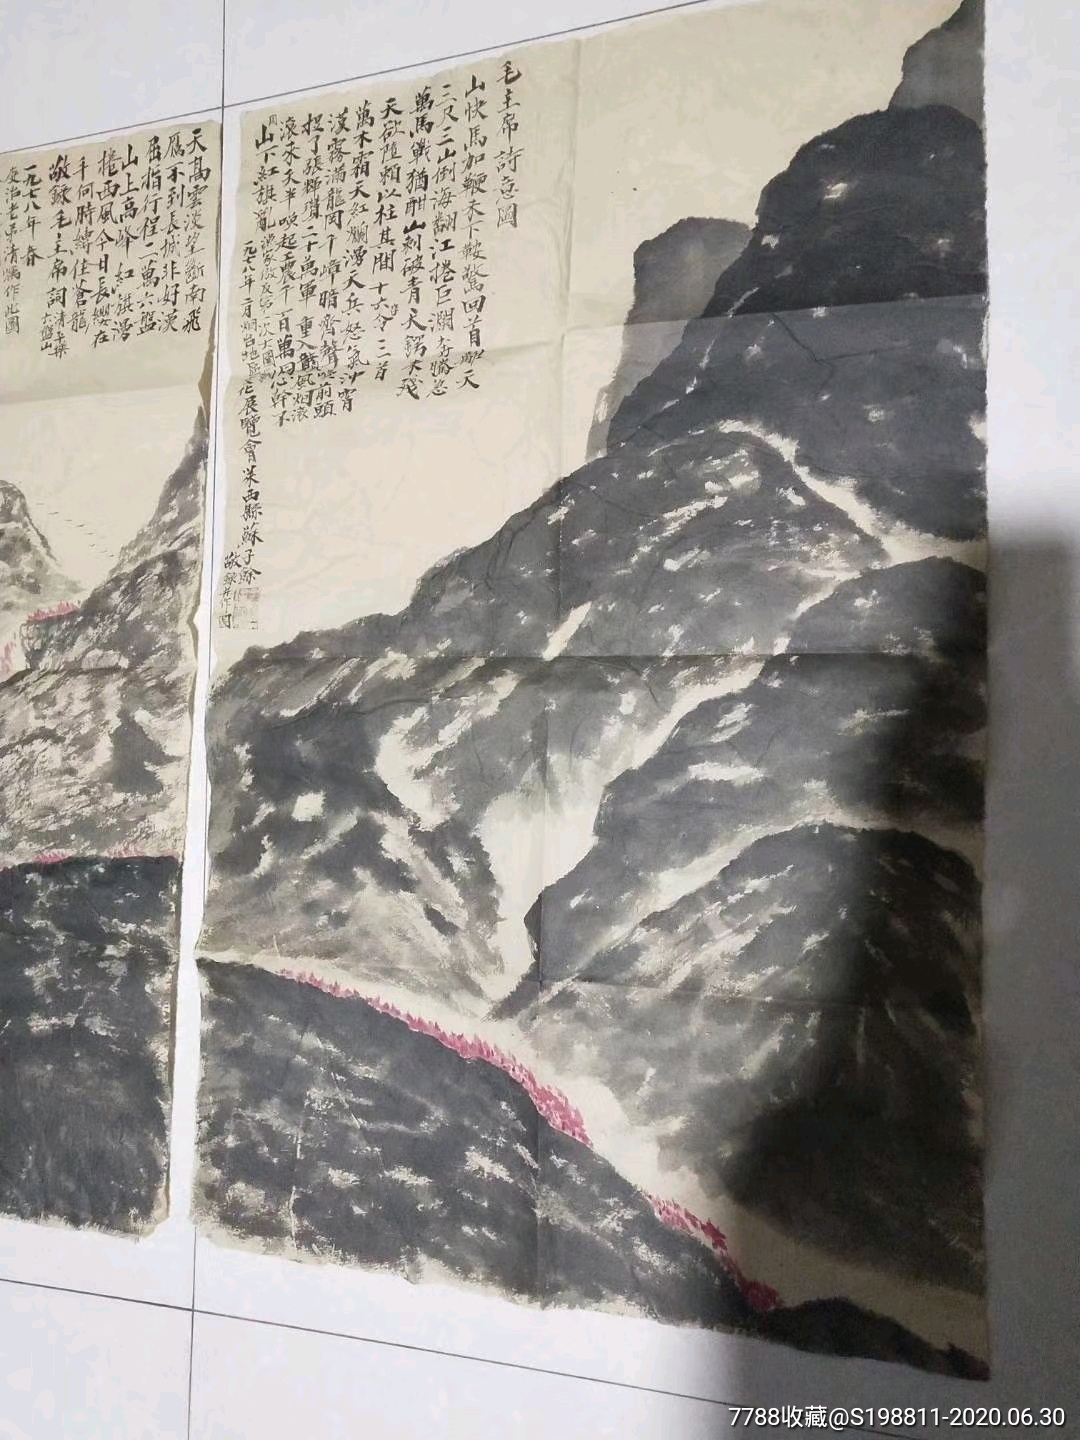 毛主席詩意圖
山快馬加鞭未下鞍驚回首離天
三尺三山倒海翻江捲巨瀾奔騰急
萬馬戰猶酣山刺破青天鍔未殘
天欲墮賴以柱其間十六令三首
萬木霜天紅爛漫天兵怒氣沖霄
漢霧滿龍岡千嶂暗齊聲喚前頭
捉了張輝瓚二十萬軍重入贛風烟滾
滾來天半喚起工農千百萬同心幹不
周山下紅旗亂漁家傲反第一次大圍剿
一九七八年二月烟台地區展覽會萊西縣蘇子
敬錄并作圖
天高雲淡望斷南飛
雁不到長城非好漢
屈指行程二萬六盤
山上高峰紅旗漫
捲西風今日長纓在
手何時縛住蒼龍
敬錄毛主席詞清平樂
六盤山
一九七八年春
作此圖
7788收藏@S198811-2020.06.30